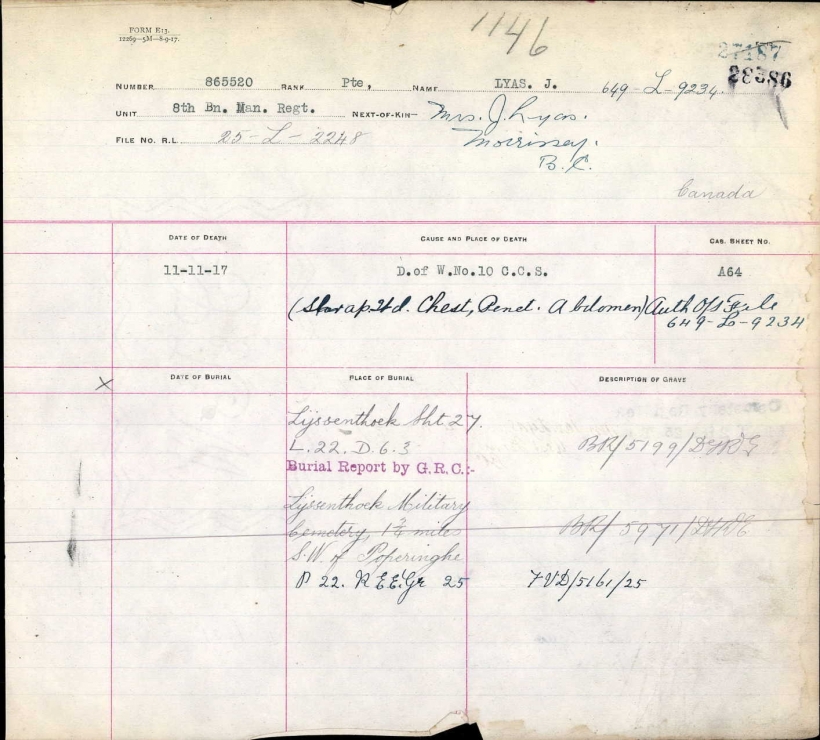 1146
FORM E13.
12269—5M—8-9-17.
27187
NUMBER 865520 RANK Pte, NAME LYAS. J. 649-L-9234.
UNIT 8th Bn. Man. Regt. NEXT-OF-KIN— Mrs. J. Lyas.
Morrissey.
B.C.
FILE NO. R.L. 25-L-2248
Canada
DATE OF DEATH CAUSE AND PLACE OF DEATH CAS. SHEET NO.
11-11-17 D.of W.No.10 C.C.S. A64
(Shrap. Wd. Chest, Penet. Abdomen) Auth O/S File
649-L-9234
X DATE OF BURIAL PLACE OF BURIAL DESCRIPTION OF GRAVE
Lijssenthoek Sht 27.
L. 22. D. 6. 3 BR/5199/DGRE
Burial Report by G.R.C.:-
Lijssenthoek Military
Cemetery, 1¾ miles BR/5971/DGRE
S.W. of Poperinghe
P 22. R EE. Gr 25 7VD/5161/25